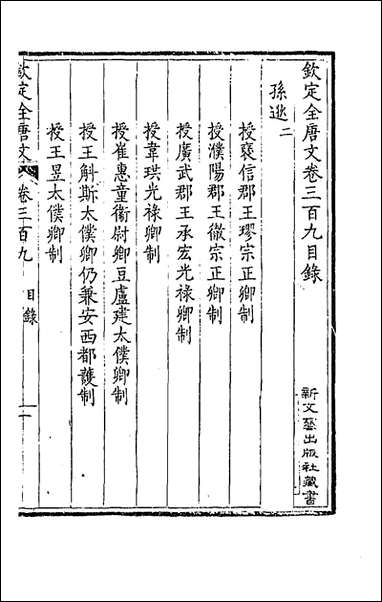 欽定全唐文卷三百九目錄
孫逖二
授襃信郡王璆宗正卿制
授濮陽郡王徹宗正卿制
授廣武郡王承宏光祿卿制
授韋珙光祿卿制
授崔惠童衞尉卿豆盧建太僕卿制
授王斛斯太僕卿仍兼安西都護制
授王昱太僕卿制
欽定全唐文 卷三百九 目錄 一
新文藝出版社藏書